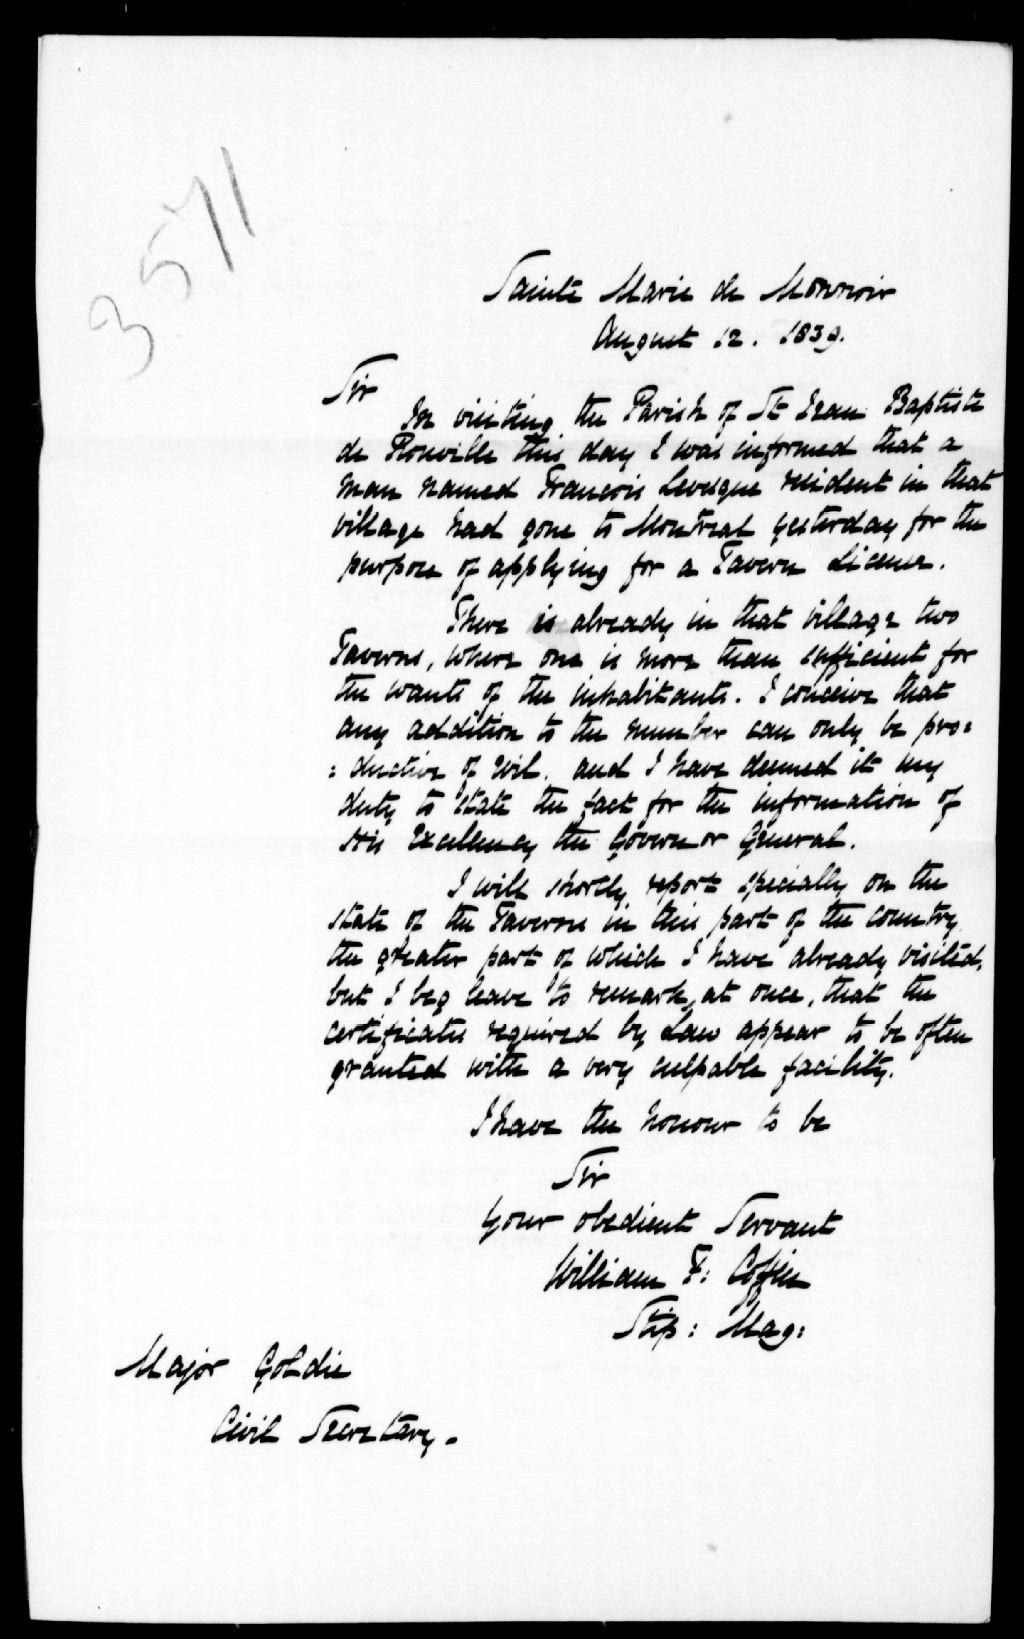 3571
Sainte Marie de Monnoir
August 12. 1839.
Sir
In visiting the Parish of St Jean Baptiste
de Rouville this day I was informed that a
man named Francois Levesque resident in that
village had gone to Montreal yesterday for the
purpose of applying for a Tavern License.
There is already in that village two
Taverns, where one is more than sufficient for
the wants of the inhabitants. I conceive that
any addition to the number can only be pro:
: ductive of evil. and I have deemed it my
duty to state the fact for the information of
His Excellency the Governor General.
I will shortly report specially on the
state of the Taverns in this part of the country
the greater part of which I have already visited,
but I beg leave to remark, at once, that the
certificates required by Law appear to be often
granted with a very culpable facility.
I have the honour to be
Sir
Your obedient Servant
William F: Coffin
Stip: Mag:
Major Goldie
Civil Secretary.